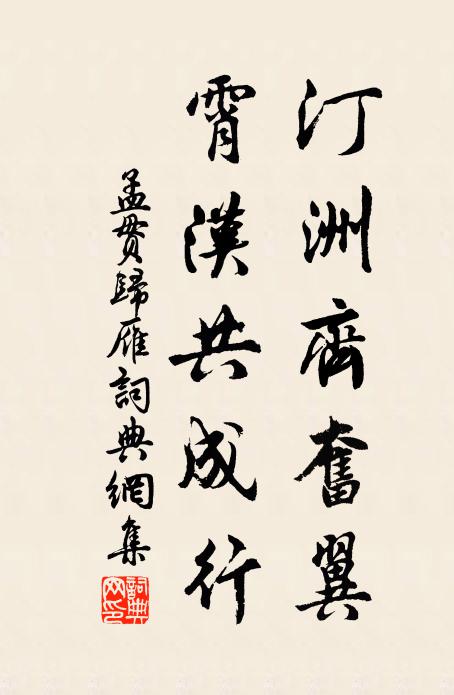 汀洲齊奮翼
霄漢共成行
孟貫歸雁詞典網集
詞典网印